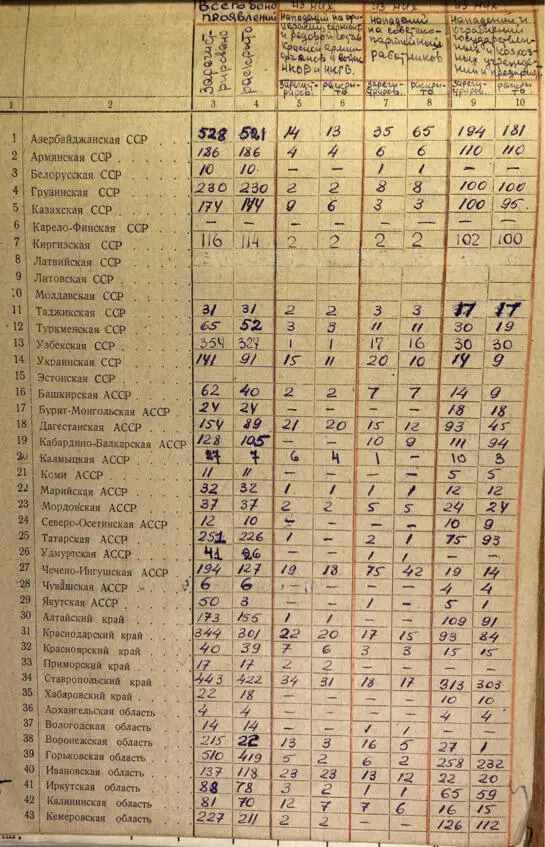 Всего было проявлений
Из них
Нападений на офицерский, сержант. и рядовой состав Красной армии органов и войск НКВД и НКГБ.
Из них
Нападений на советско-партийных работников
Из них
Нападений и ограблений государственных и колхозных учрежде-ний и предприят.
Зарегистрировано раскрыто Зарегистриров. раскрыто Зарегистриров. раскрыто Зарегистриров. раскрыто
1 2 3 4 5 6 7 8 9 10
1 Азербайджанская ССР 528 521 14 13 35 65 194 181
2 Армянская ССР 186 186 4 4 6 6 110 110
3 Белорусская ССР 10 10 — — 1 1 — —
4 Грузинская ССР 230 230 2 2 8 8 100 100
5 Казахская ССР 174 144 9 6 3 3 100 95
6 Карело-Финская ССР — — — — — — — —
7 Киргизская ССР 116 114 2 2 2 2 102 100
8 Латвийская ССР
9 Литовская ССР
10 Молдавская ССР
11 Таджикская ССР 31 31 2 2 3 3 17 17
12 Туркменская ССР 65 52 3 3 11 11 30 19
13 Узбекская ССР 354 324 1 1 17 16 30 30
14 Украинская ССР 141 91 15 11 20 10 14 9
15 Эстонская ССР
16 Башкирская АССР 62 40 2 2 7 7 14 9
17 Бурят-Монгольская АССР 24 24 — — — — 18 18
18 Дагестанская АССР 154 89 21 20 15 12 93 45
19 Кабардино-Балкарская АССР 128 105 — — 10 9 111 94
20 Калмыцкая АССР 27 7 6 4 1 — 10 3
21 Коми АССР 11 11 — — — — 5 5
22 Марийская АССР 32 32 1 1 1 1 12 12
23 Мордовская АССР 37 37 2 2 5 5 24 24
24 Северо-Осетинская АССР 12 10 — — — — 10 9
25 Татарская АССР 251 226 1 — 2 1 75 93
26 Удмуртская АССР 41 26 1 1 — —
27 Чечено-Ингушская АССР 194 127 19 18 75 42 19 14
28 Чувашская АССР 6 6 — — — — 4 4
29 Якутская АССР 50 3 — — 1 — 5 1
30 Алтайский край 173 155 1 1 — — 109 91
31 Краснодарский край 344 301 22 20 17 15 93 84
32 Красноярский край 40 39 7 6 3 3 15 15
33 Приморский край 17 17 2 2 — — — —
34 Ставропольский край 443 422 34 31 18 17 313 303
35 Хабаровский край 22 18 — — — — 10 10
36 Архангельская область 4 4 — — — — 4 4
37 Вологодская область 14 14 — — 1 1 — —
38 Воронежская область 215 22 13 3 16 5 27 1
39 Горьковская область 510 419 5 2 6 2 258 232
40 Ивановская область 137 118 23 23 13 12 22 20
41 Иркутская область 88 78 3 2 1 1 65 59
42 Калининская область 81 70 12 7 7 6 16 15
43 Кемеровская область 227 211 2 2 — — 126 112